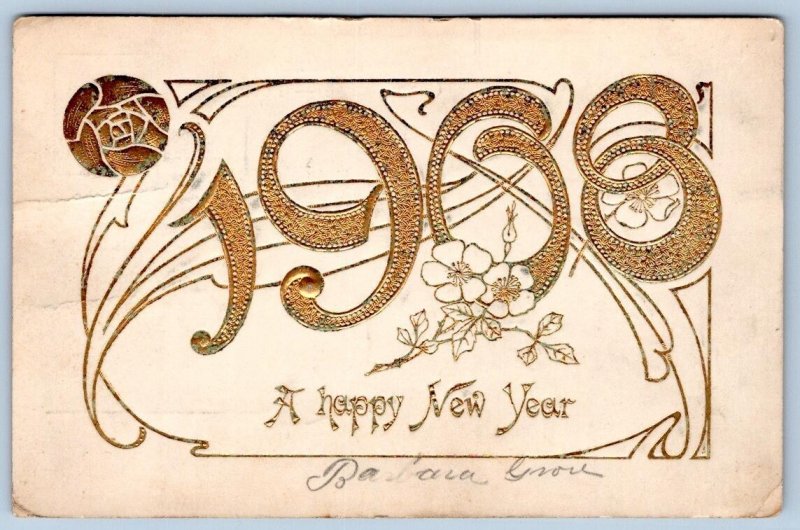 1908
A happy New Year
Barbara Grove